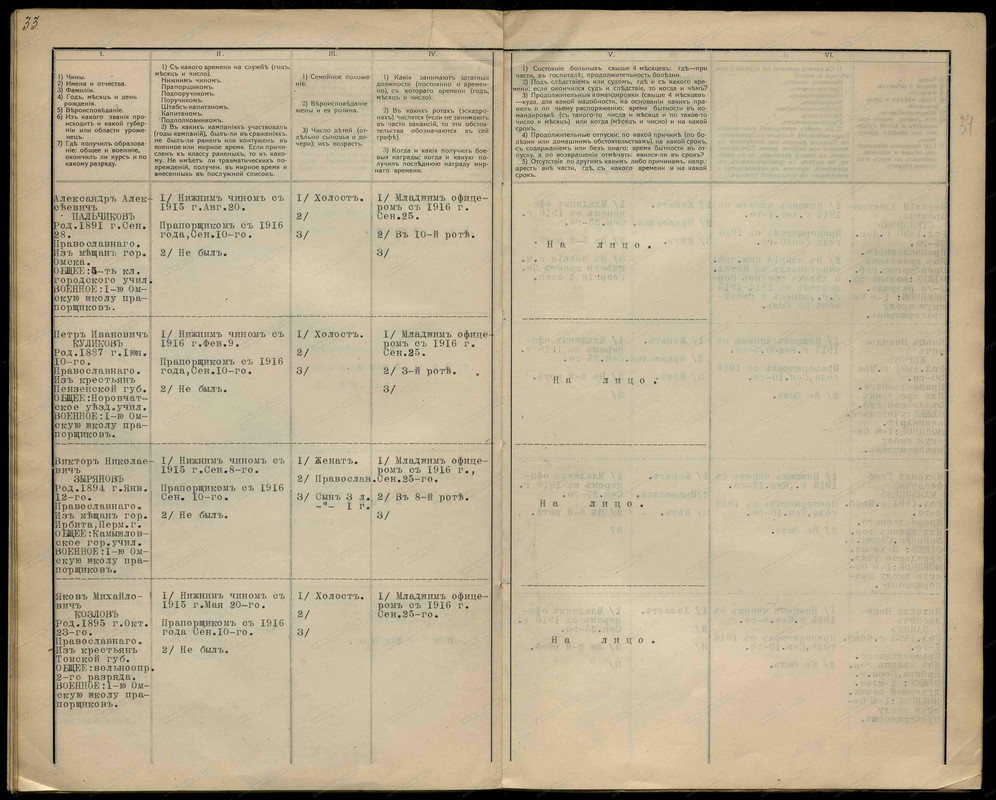 33
34
I.
1) Чины.
2) Имена и отчества.
3) Фамилія.
4) Годъ, мѣсяцъ и день
рожденія.
5) Вѣроисповѣданіе.
6) Изъ какого званія про-
исходитъ и какой губер-
ніи или области уроже-
нецъ.
7) Гдѣ получилъ образова-
ніе: общее и военное,
окончилъ ли курсъ и по
какому разряду.
II
1) Съ какого времени на службѣ (годъ,
мѣсяцъ и число).
Нижнимъ чиномъ.
Прапорщикомъ.
Подпоручикомъ.
Поручикомъ.
Штабсъ-капитаномъ.
Капитаномъ.
Подполковникомъ.
2) Въ какихъ кампаніяхъ участвовалъ
(годы кампаній), былъ-ли въ сраженіяхъ,
не былъ-ли раненъ или контуженъ въ
военное или мирное время. Если причи-
сленъ къ классу раненыхъ, то къ како-
му. Не имѣетъ ли травматическихъ по-
врежденій, получен. въ мирное время и
внесенныхъ въ послужной списокъ.
III.
1) Семейное положе-
ніе.
2) Вѣроисповѣданіе
жены и ея родина.
3) Число дѣтей (от-
дѣльно сыновья и до-
чери); ихъ возрастъ.
IV.
1) Какія занимаютъ штатныя
должности (постоянно и времен-
но), съ котораго времени (годъ,
мѣсяцъ и число).
2) Въ какихъ ротахъ (эскадро-
нахъ) числятся (если не занимаютъ
въ части вакансій, то эти обстоя-
тельства обозначаются въ сей
графѣ).
3) Когда и какія получилъ бое-
выя награды; когда и какую по-
лучилъ послѣднюю награду мир-
наго времени.
V.
1) Состояніе больныхъ свыше 4 мѣсяцевъ: гдѣ—при
части, въ госпиталѣ; продолжительность болѣзни.
2) Подъ слѣдствіемъ или судомъ, гдѣ и съ какого вре-
мени; если окончился судъ и слѣдствіе, то когда и чѣмъ?
3) Продолжительныя командировки (свыше 4 мѣсяцевъ
—куда, для какой надобности, на основаніи какихъ пра-
вилъ и по чьему распоряженію; время бытности въ ко-
мандировкѣ (съ такого то числа и мѣсяца и по такое-то
число и мѣсяцъ) или когда (мѣсяцъ и число) и на какой
срокъ.
4) Продолжительные отпуски: по какой причинѣ (по бо-
лѣзни или домашнимъ обстоятельствамъ), на какой срокъ,
съ содержаніемъ или безъ онаго; время бытности въ от-
пуску, а по возвращеніи отмѣчать: явился-ли въ срокъ?
5) Отсутствіе по другимъ какимъ либо причинамъ, напр.:
арестъ внѣ части, гдѣ, съ какого времени и на какой
срокъ.
VI.
Александръ Алек-
сѣевичъ
ПАЛЬЧИКОВЪ
Род.1891 г.Сен.
28.
Православнаго.
Изъ мѣщанъ гор.
Омска.
ОБЩЕЕ:5-ть кл.
городского учил.
ВОЕННОЕ:1-ю Ом-
скую школу пра-
порщиковъ.
1/ Нижнимъ чиномъ съ
1915 г.Авг.20.
Прапорщикомъ съ 1916
года,Сен.10-го.
2/ Не былъ.
1/ Холостъ.
2/
3/
1/ Младшимъ офице-
ромъ съ 1916 г.
Сен.25.
2/ Въ 10-й ротѣ.
3/
На лицо.
Петръ Ивановичъ
КУЛИКОВЪ
Род.1887 г.Іюн.
10-го.
Православнаго.
Изъ крестьянъ
Пензенской губ.
ОБЩЕЕ:Норовчат-
ское уѣзд.учил.
ВОЕННОЕ:1-ю Ом-
скую школу пра-
порщиковъ.
1/ Нижнимъ чиномъ съ
1916 г.Фев.9.
Прапорщикомъ съ 1916
года,Сен.10-го.
2/ Не былъ.
1/ Холостъ.
2/
3/
1/ Младшимъ офице-
ромъ съ 1916 г.
Сен.25.
2/ 3-й ротѣ.
3/
На лицо.
Викторъ Николае-
вичъ
ЗЫРЯНОВЪ
Род.1894 г.Янв.
12-го.
Православнаго.
Изъ мѣщанъ гор.
Ирбита,Перм.г.
ОБЩЕЕ:Камышлов-
ское гор.учил.
ВОЕННОЕ:1-ю Ом-
скую школу пра-
порщиковъ.
1/ Нижнимъ чиномъ съ
1915 г.Сен.8-го.
Прапорщикомъ съ 1916
Сен. 10-го.
2/ Не былъ.
1/ Женатъ.
2/ Православ.
3/ Сынъ 3 л.
-"- 1 г.
1/ Младшимъ офице-
ромъ съ 1916 г.,
Сен.25-го.
2/ Въ 8-й ротѣ.
3/
На лицо.
Яковъ Михайло-
вичъ
КОЗЛОВЪ
Род.1895 г.Окт.
23-го.
Православнаго.
Изъ крестьянъ
Томской губ.
ОБЩЕЕ:вольноопр.
2-го разряда.
ВОЕННОЕ:1-ю Ом-
скую школу пра-
порщиковъ.
1/ Нижнимъ чиномъ съ
1915 г.Мая 20-го.
Прапорщикомъ съ 1916
года Сен.10-го.
2/ Не былъ.
1/ Холостъ.
2/
3/
1/ Младшимъ офице-
ромъ съ 1916 г.
Сен.25-го.
На лицо.